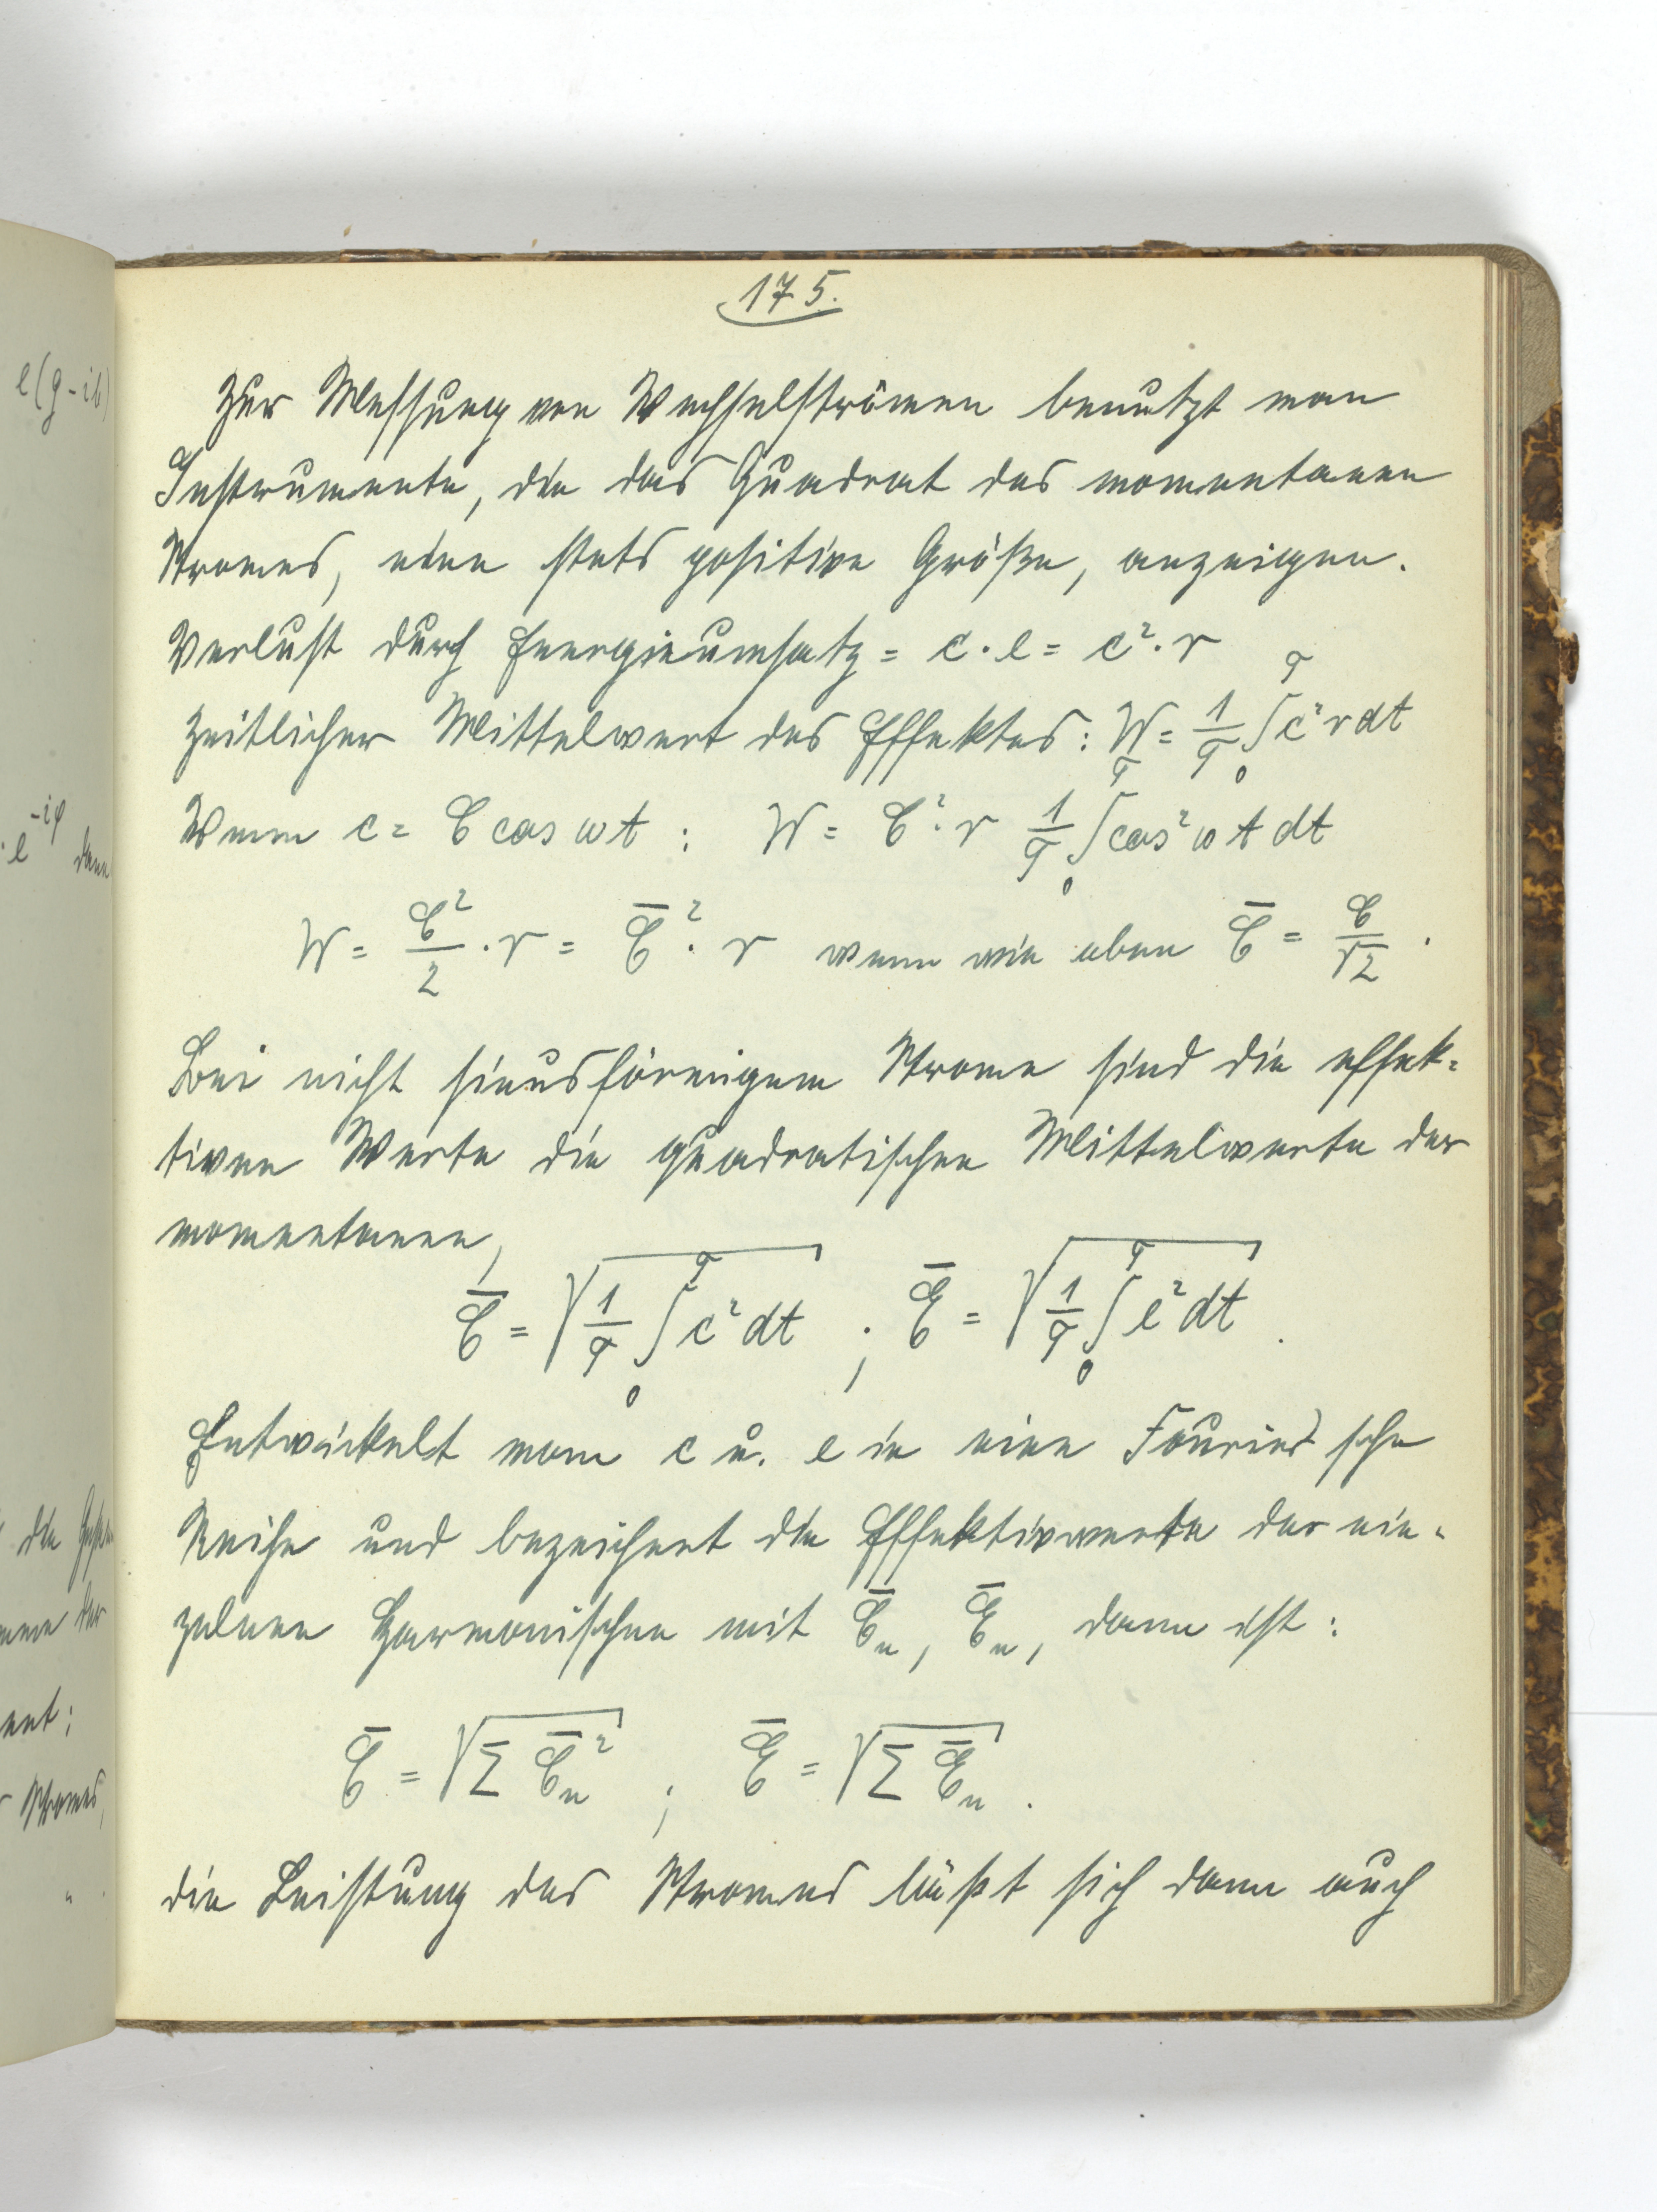 175.
Zur Messung von Wechselströmen benutzt man
Instrumente, die das Quadrat des momentanen
Stromes, eine stets positive Größe, anzeigen.
Verlust durch Energieumsatz = c · e = c² · r
Zeitlicher Mittelwert des Effektes: W = 1/T ∫₀ᵀ c² r dt
Wenn c = C cos ωt : W = C² · r 1/T ∫₀ᵀ cos² ωt dt
W = C²/2 · r = C̄² · r wenn wie oben C̄ = C/√2 .
Bei nicht sinusförmigem Strome sind die effek-
tiven Werte die quadratischen Mittelwerte der
momentanen,
C̄ = √(1/T ∫₀ᵀ c² dt) ; Ē = √(1/T ∫₀ᵀ e² dt) .
Entwickelt man c u. e in eine Fourier'sche
Reihe und bezeichnet die Effektivwerte der ein-
zelnen Harmonischen mit C̄ₙ, Ēₙ, dann ist:
C̄ = √(Σ C̄ₙ²) ; Ē = √(Σ Ēₙ) .
die Leistung des Stromes läßt sich dann auch
e(g-ib)
· e^(-iφ) dann
die
der
Stromes,